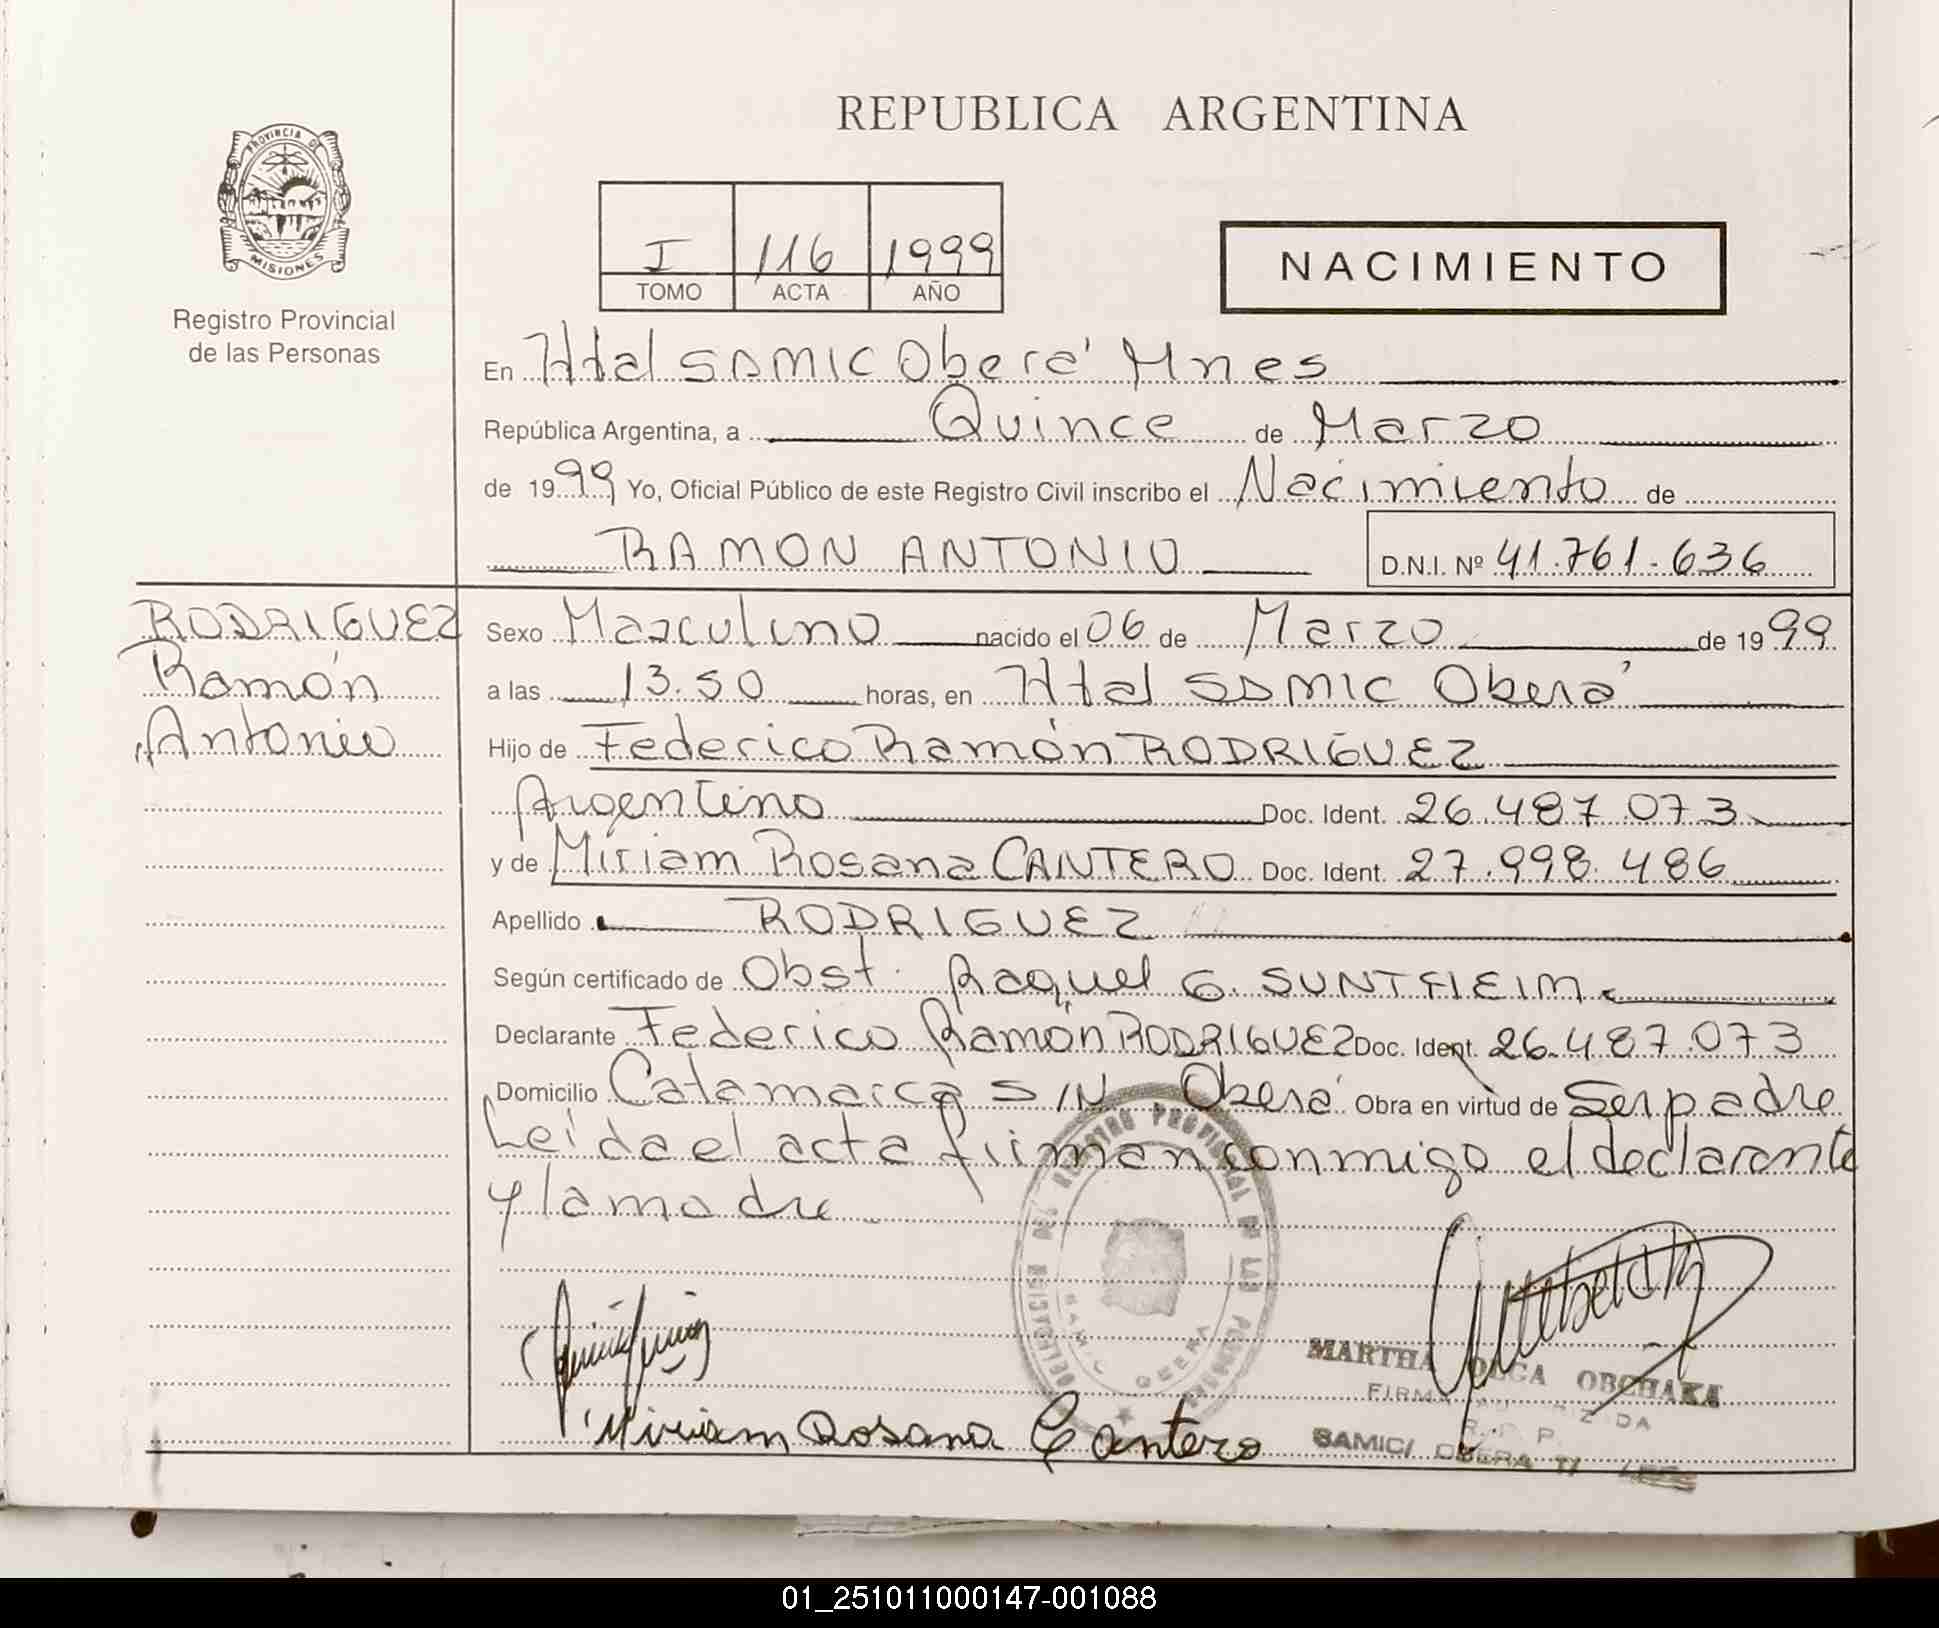 REPUBLICA ARGENTINA
PROVINCIA DE
MISIONES
Registro Provincial
de las Personas
I 116 1999
TOMO ACTA AÑO
NACIMIENTO
En Htal SAMIC Oberá Mnes
República Argentina, a Quince de Marzo
de 1999 Yo, Oficial Público de este Registro Civil inscribo el Nacimiento de
RAMON ANTONIO D.N.I. Nº 41.761.636
RODRIGUEZ
Ramón
Antonio
Sexo Masculino nacido el 06 de Marzo de 1999
a las 13.50 horas, en Htal SAMIC Oberá
Hijo de Federico Ramón RODRIGUEZ
Argentino Doc. Ident. 26.487.073
y de Miriam Rosana CANTERO Doc. Ident. 27.998.486
Apellido RODRIGUEZ
Según certificado de Obst. Raquel G. SUNTHEIM
Declarante Federico Ramón RODRIGUEZ Doc. Ident. 26.487.073
Domicilio Catamarca S/N Oberá Obra en virtud de Ser padre
Leída el acta firman conmigo el declarante
y la madre
DELEGACION DEL REGISTRO PROVINCIAL DE LAS PERSONAS
SAMIC OBERA
MARTHA OLGA OBCHAKA
FIRMA AUTORIZADA
R. P. P.
SAMIC/ OBERA
Miriam Rosana Cantero
01_251011000147-001088